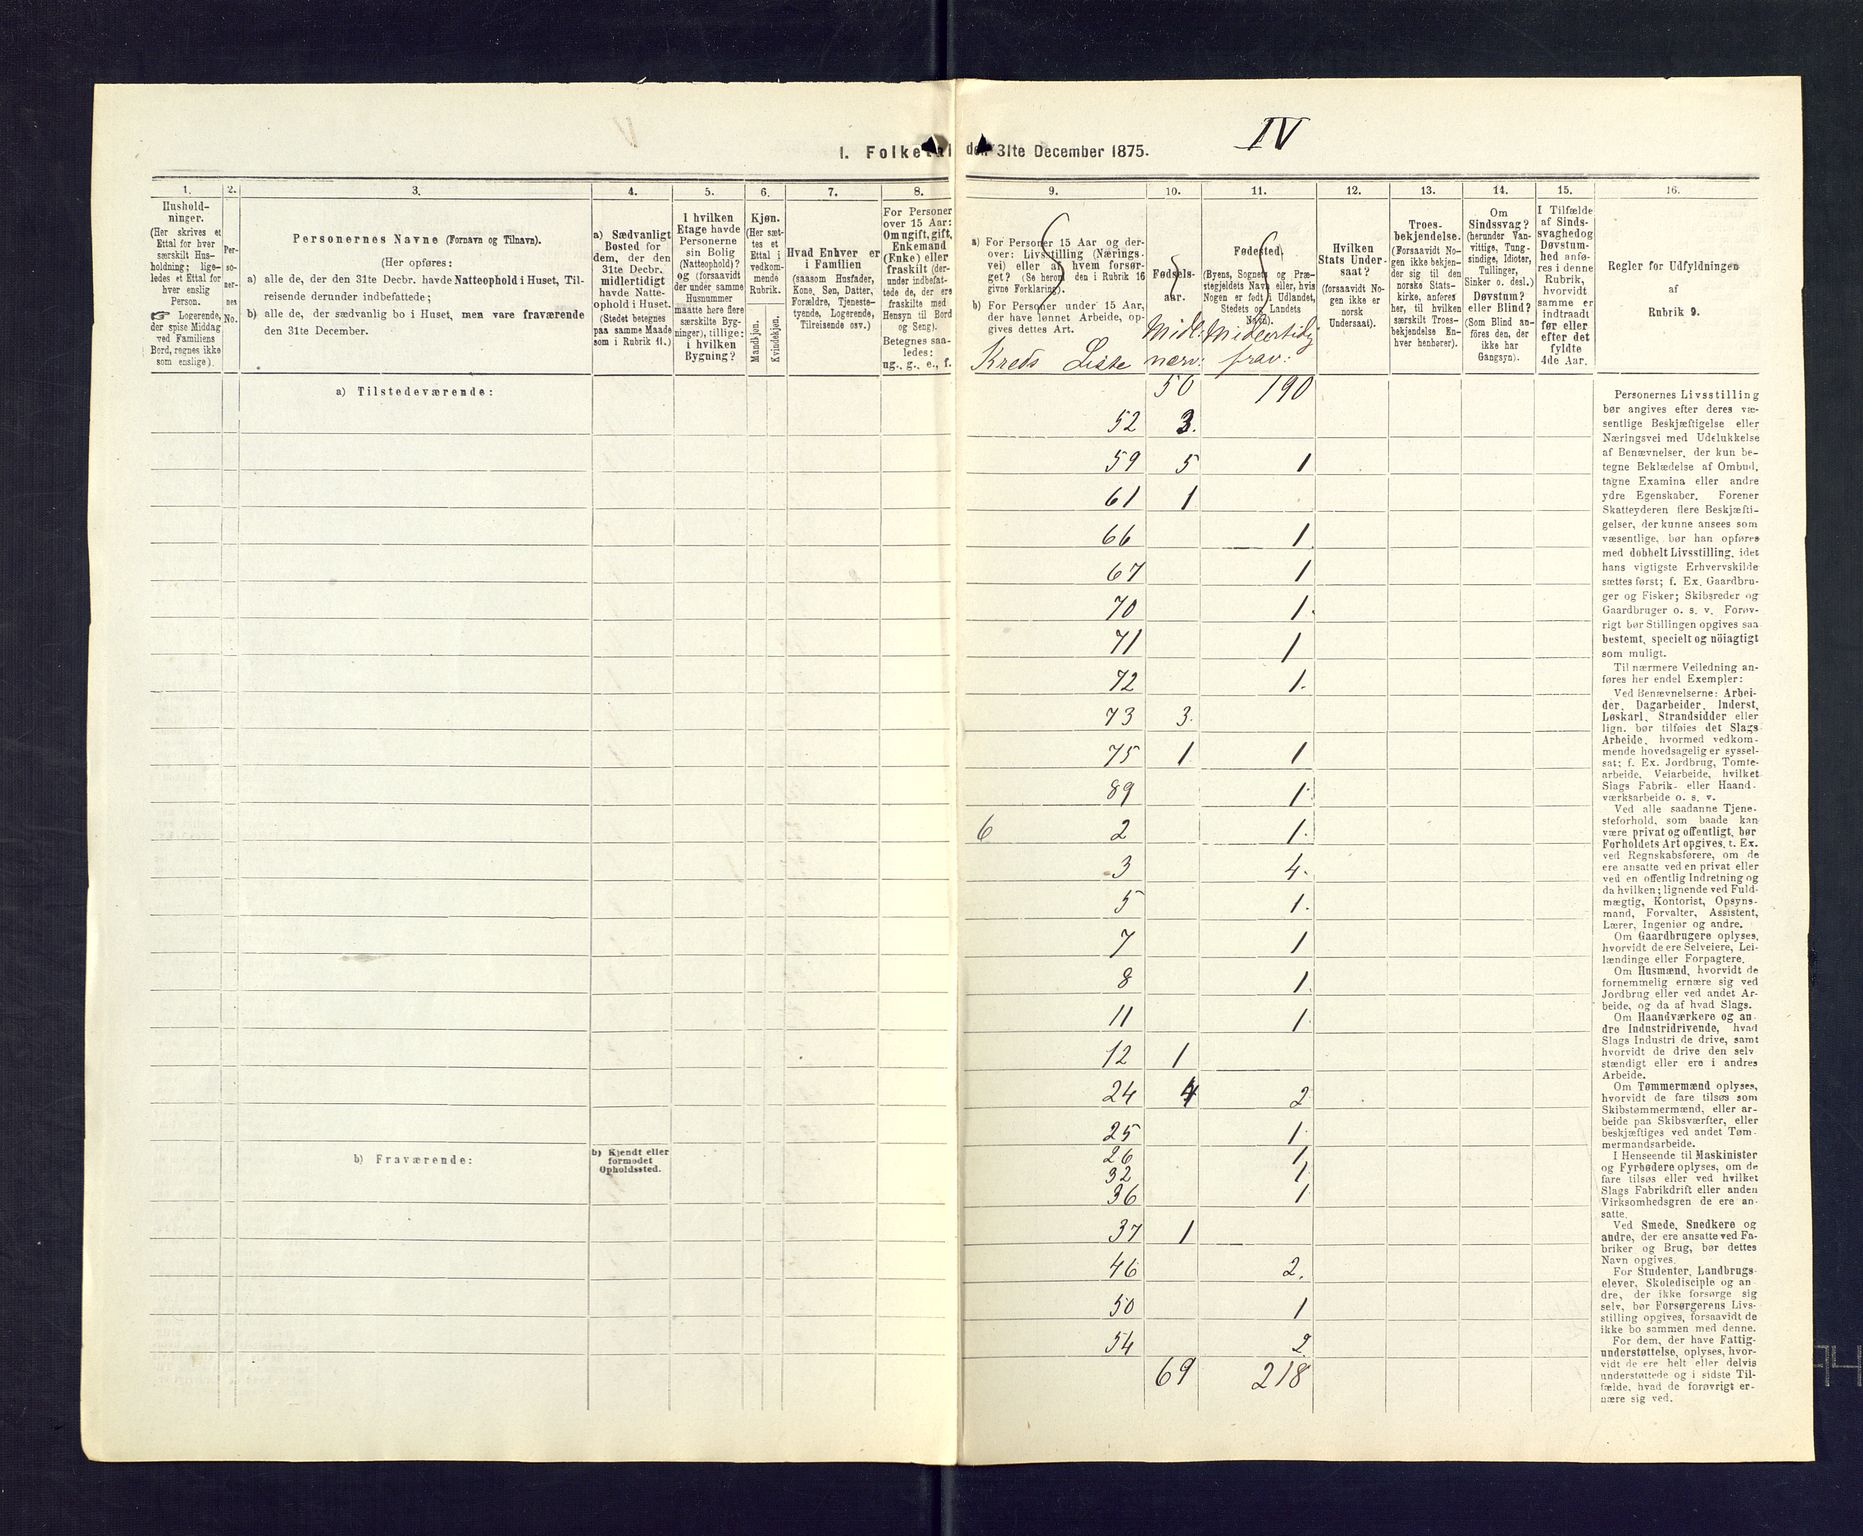 IV
I. Folketal den 31te December 1875.
1. 2. 3. 4. 5. 6. 7. 8. 9. 10. 11. 12. 13. 14. 15. 16.
Husholdninger.
(Her skrives et
Ettal for hver
særskilt Husholdning;
ligeledes et Ettal for
hver enslig
Person.
Logerende,
der spise Middag
ved Familiens
Bord, regnes ikke
som enslige).
Personernes No.
Personernes Navne (Fornavn og Tilnavn).
(Her opføres:
a) alle de, der den 31te Decbr. havde Natteophold i Huset, Tilreisende derunder indbefattede;
b) alle de, der sædvanlig bo i Huset, men vare fraværende
den 31te December.
a) Sædvanligt
Bosted for
dem, der den
31te Decbr.
midlertidigt
havde Natteophold i Huset.
(Stedet betegnes
paa samme Maade
som i Rubrik 11.)
I hvilken
Etage havde
Personerne
sin Bolig
(Natteophold)?
og (forsaavidt
der under samme
Husnummer
maatte høre flere
særskilte Bygninger), tillige:
i hvilken
Bygning?
Kjøn.
(Her sættes et
Ettal i
vedkommende
Rubrik.
Mandkjøn.
Kvindekjøn.
Hvad Enhver er
i Familien
(saasom Husfader,
Kone, Søn, Datter,
Forældre, Tjenestetyende, Logerende,
Tilreisende osv.)
For Personer
over 15 Aar:
Om ugift, gift,
Enkemand
(Enke) eller
fraskilt (derunder indbefattede de, der ere
fraskilte med
Hensyn til Bord
og Seng).
Betegnes saaledes:
ug., g., e., f.
a) For Personer 15 Aar og derover: Livsstilling (Næringsvei) eller af hvem forsørget? (Se herom den i Rubrik 16
givne Forklaring).
b) For Personer under 15 Aar,
der have lønnet Arbeide, opgives dettes Art.
Kreds Liste
Fødselsaar.
Midl: nærv:
Fødested.
(Byens, Sognets og Præstegjeldets Navn eller, hvis
Nogen er født i Udlandet,
Stedets og Landets
Navn).
Midlertidig frav:
Hvilken
Stats Undersaat?
(forsaavidt Nogen ikke er
norsk
Undersaat).
Troesbekjendelse.
(Forsaavidt Nogen ikke bekjender sig til den
norske Statskirke, anføres
her, til hvilken
særskilt Troesbekjendelse Enhver henhører).
Om
Sindssvag?
(herunder Vanvittige, Tungsindige, Idioter,
Tullinger,
Sinker o. desl.)
Døvstum?
eller Blind?
(Som Blind anføres den, der
ikke har
Gangsyn).
I Tilfælde
af Sindssvaghed og
Døvstumhed anføres i denne
Rubrik,
hvorvidt
samme er
indtraadt
før eller
efter det
fyldte
4de Aar.
Regler for Udfyldningen
af
Rubrik 9.
a) Tilstedeværende:
50 190
52 3.
59 5 1
61 1
66 1
67 1
70 1.
71 1
72 1.
73 3.
75 1 1
89 1.
6 2 1.
3 4.
5 1.
7 1
8 1
11 1.
12 1
24 4 2
25 1.
26 1
32 1
36 1
37 1
46 2.
50 1
54 2
69 218
b) Fraværende:
b) Kjendt eller
formodet
Opholdssted.
Personernes Livsstilling
bør angives efter deres væsentlige Beskjæftigelse eller
Næringsvei med Udelukkelse
af Benævnelser, der kun betegne Beklædelse af Ombud,
tagne Examina eller andre
ydre Egenskaber. Forener
Skatteyderen flere Beskjæftigelser, der kunne ansees som
væsentlige, bør han opføres
med dobbelt Livsstilling, idet
hans vigtigste Erhvervskilde
sættes først; f. Ex. Gaardbruger og Fisker; Skibsreder og
Gaardbruger o. s. v. Forøvrigt bør Stillingen opgives saa
bestemt, specielt og nöiagtigt
som muligt.
Til nærmere Veiledning anføres her endel Exempler:
Ved Benævnelserne: Arbeider, Dagarbeider, Inderst,
Løskarl, Strandsidder eller
lign. bør tilføies det Slags
Arbeide, hvormed vedkommende hovedsagelig er sysselsat; f. Ex. Jordbrug, Tomtearbeide, Veiarbeide, hvilket
Slags Fabrik- eller Haandværksarbeide o. s. v.
Ved alle saadanne Tjenesteforhold, som baade kan
være privat og offentligt, bør
Forholdets Art opgives, t. Ex.
ved Regnskabsførere, om de
ere ansatte ved en privat eller
ved en offentlig Indretning og
da hvilken; lignende ved Fuldmægtig, Kontorist, Opsynsmand, Forvalter, Assistent,
Lærer, Ingeniør og andre.
Om Gaardbrugere oplyses,
hvorvidt de ere Selveiere, Leilændinge eller Forpagtere.
Om Husmænd, hvorvidt de
fornemmelig ernære sig ved
Jordbrug eller ved andet Arbeide, og da af hvad Slags.
Om Haandværkere og andre Industridrivende, hvad
Slags Industri de drive, samt
hvorvidt de drive den selvstændigt eller ere i andres
Arbeide.
Om Tømmermænd oplyses,
hvorvidt de fare tilsøs som
Skibstømmermænd, eller arbeide paa Skibsværfter, eller
beskjæftiges ved andet Tømmermandsarbeide.
I Henseende til Maskinister
og Fyrbødere oplyses, om de
fare tilsøs eller ved hvilket
Slags Fabrikdrift eller anden
Virksomhedsgren de ere ansatte.
Ved Smede, Snedkere og
andre, der ere ansatte ved Fabriker og Brug, bør dettes
Navn opgives.
For Studenter, Landbrugselever, Skoledisciple og andre, der ikke forsørge sig
selv, bør Forsørgerens Livsstilling opgives, forsaavidt de
ikke bo sammen med denne.
For dem, der have Fattigunderstøttelse, oplyses, hvorvidt de ere helt eller delvis
understøttede og i sidste Tilfælde, hvad de forøvrigt ernære sig ved.